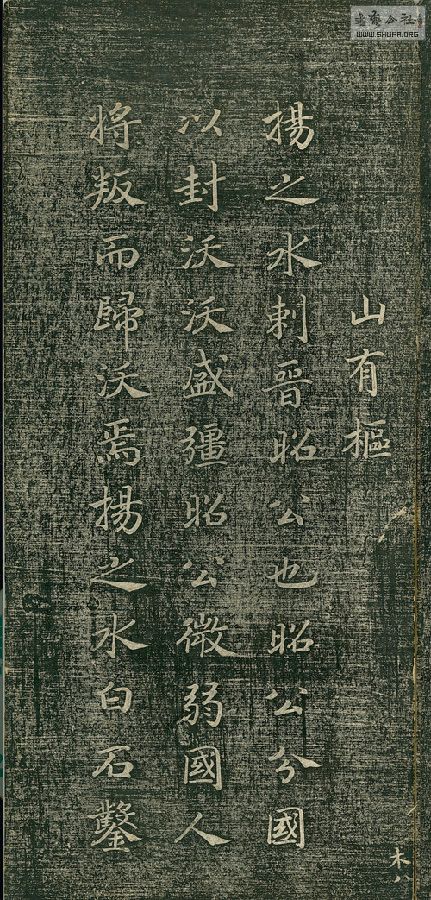 山有樞
揚之水刺晉昭公也昭公分國
以封沃沃盛彊昭公微弱國人
將叛而歸沃焉揚之水白石鑿
木八
书法公社
WWW.SHUFA.ORG